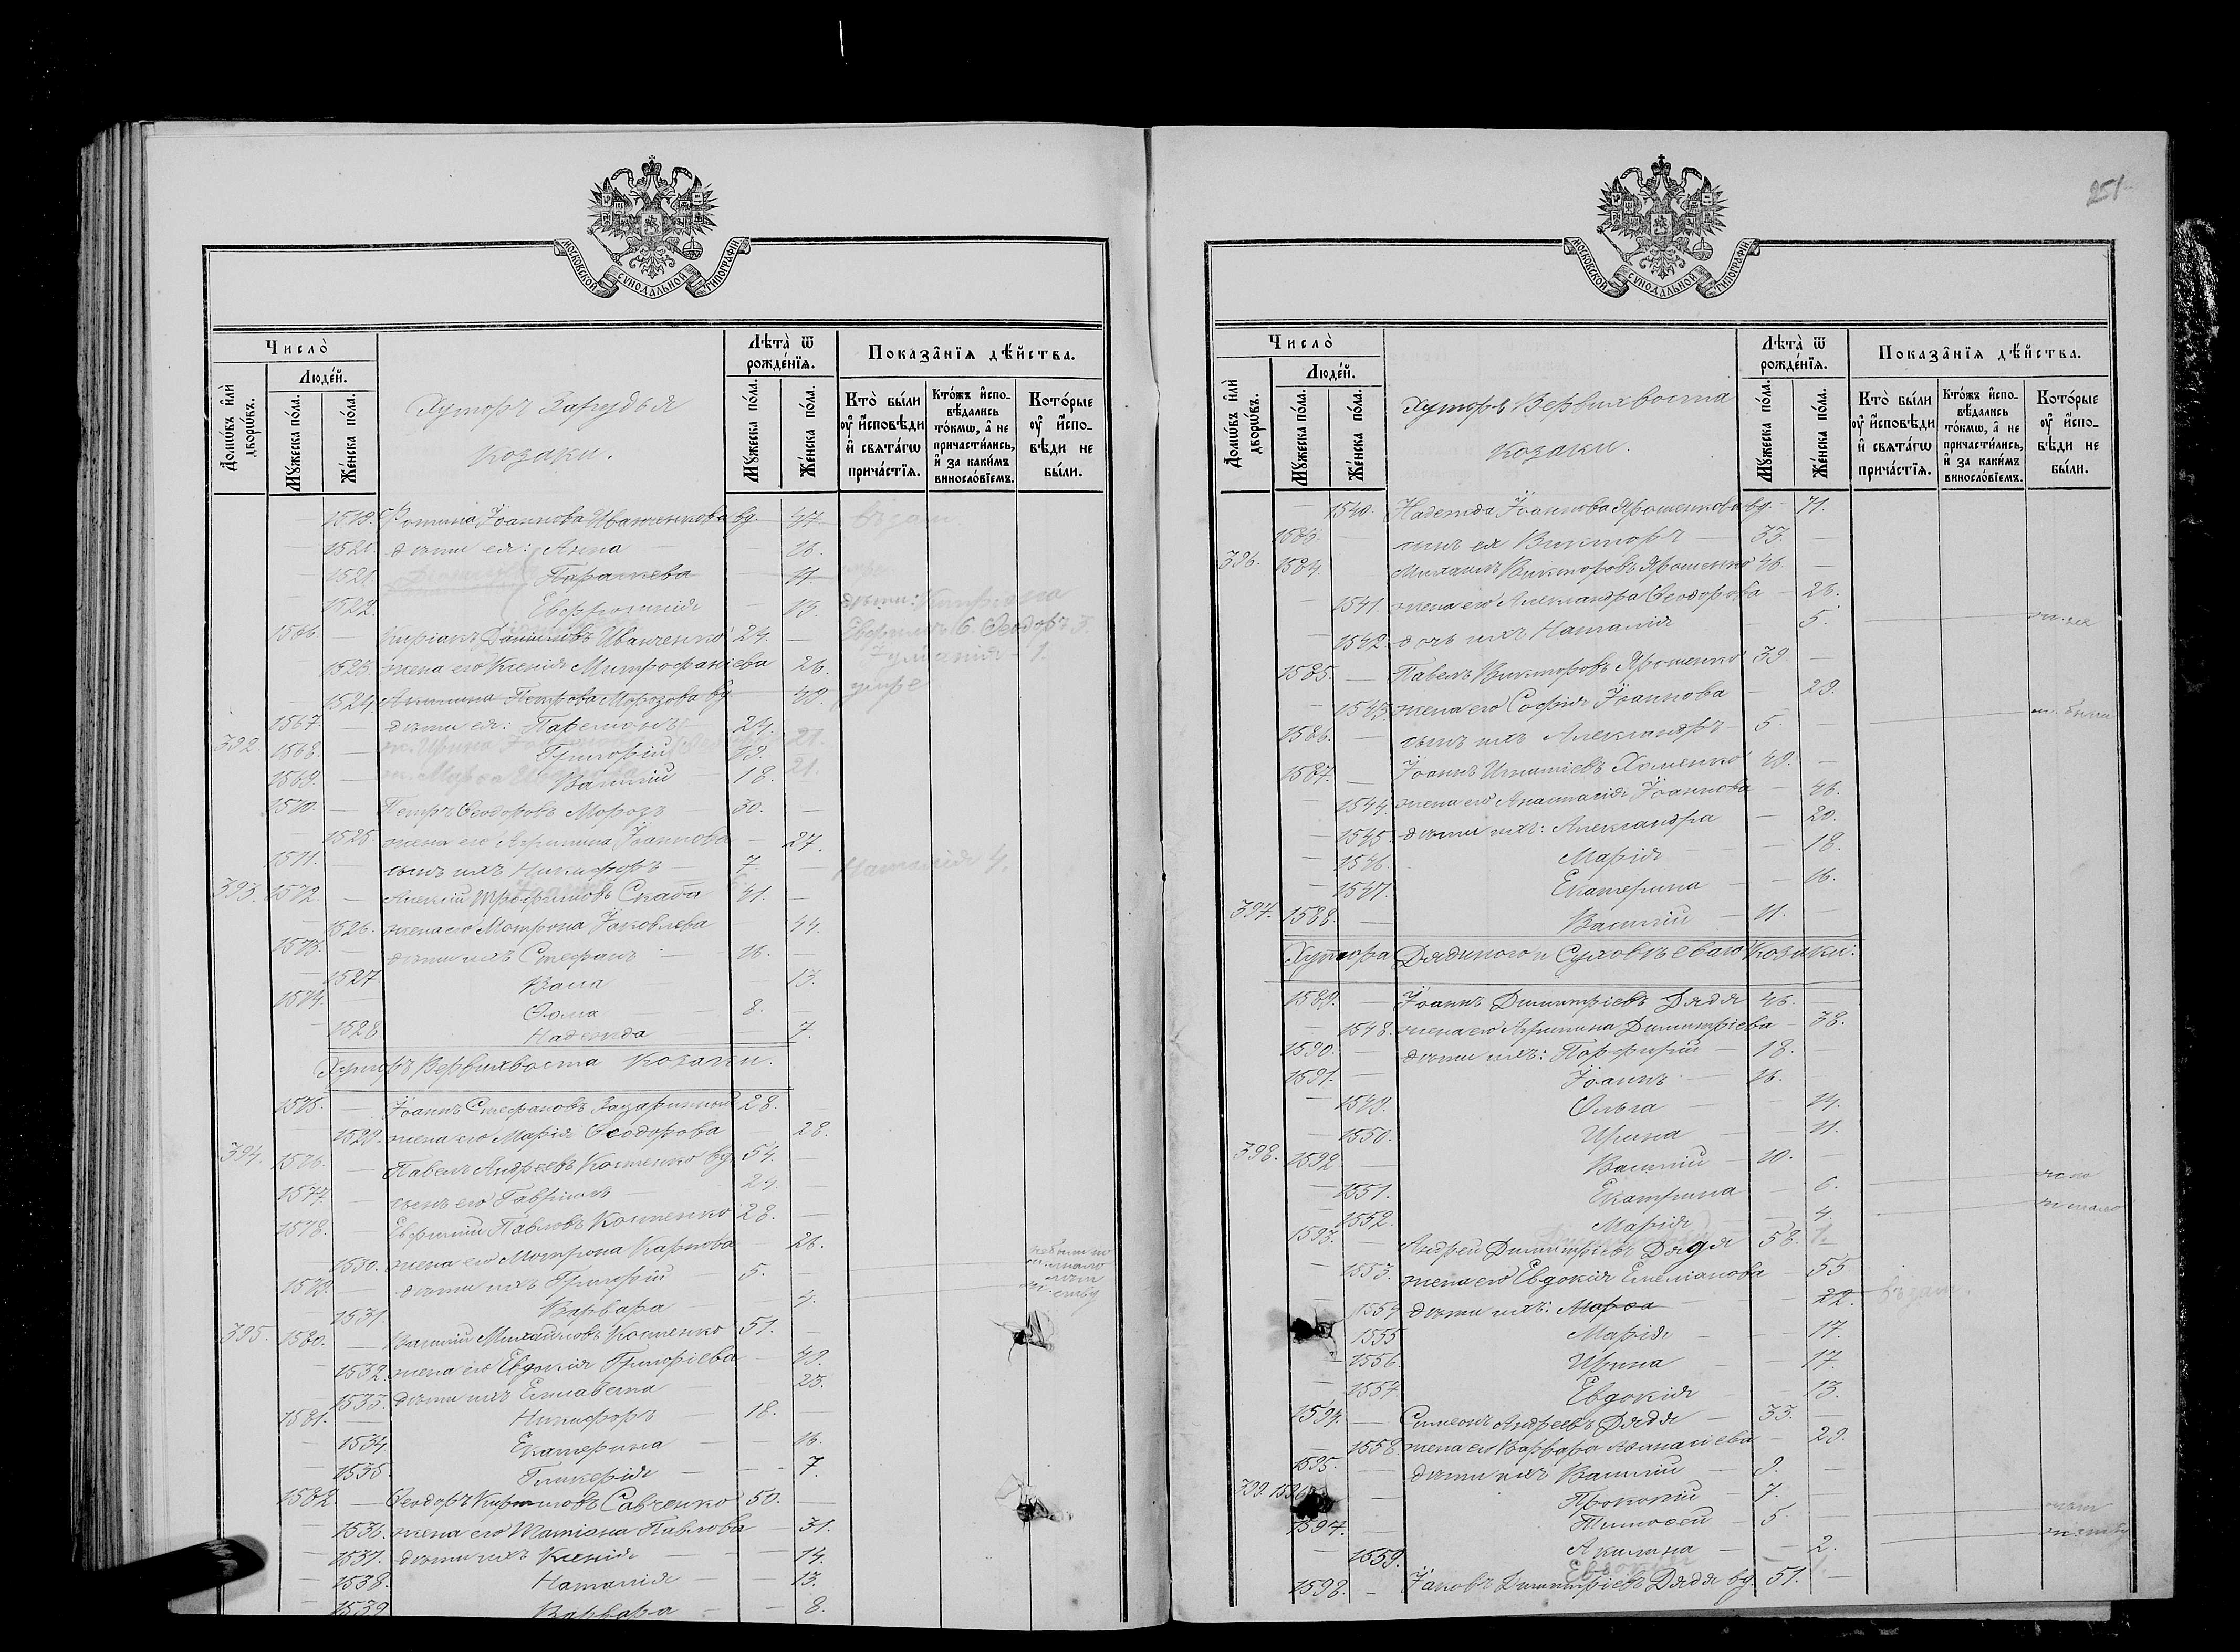 МОСКОВСКОЙ СѴНОДАЛЬНОЙ ТИПОГРАФІИ
Число̀
Людѐй.
Домѡ́въ и҆лѝ дворѡ́въ.
Мꙋ́жеска по́ла.
Же́нска по́ла.
Хуторъ Загрудья
Козаки.
Лѣ́та ѿ рожде́нїѧ.
Мꙋ́жеска по́ла.
Же́нска по́ла.
Показа̂нїѧ дѣ́йства.
Кто̀ бы́ли ᲂу҆ и҆́сповѣди и҆ свѧта́гѡ прича́стїѧ.
Кто́жъ и҆спо-вѣ́дались то́кмѡ, а҆ не причасти́лись, и҆ за каки́мъ виносло́вїемъ.
Кото́рые ᲂу҆ и҆́спо-вѣди не бы́ли.
1519. Фотина Іоаннова Иванченкова вд. 47
1520. дѣти ея: Анна 16.
1521. Параскева 11
1522. Евфросинія 13. дѣти:
1566. Кипріанъ Даниловъ Иванченко 24. Ѳеодоръ 3.
1523. жена его Ксенія Митрофаніева 26. 1.
1524. Акилина Петрова Морозова вд 49. умре
1567. дѣти ея: Павелъ 24.
392. 1568. Григорій 19. 21.
1569. Василій 18. 21.
1570. Петръ Ѳеодоровъ Морозъ 30.
1525. жена его Агрипина Іоаннова 27.
1571. сынъ ихъ Никифоръ 7. Наталія 4.
393. 1572. Алексій Трофимовъ Скаба 41.
1526. жена его Мотрона Іаковлева 44.
1573. дѣти ихъ Стефанъ 16.
1527. Васса 13.
1574. Ѳома 8.
1528. Надежда 7.
Хуторъ Вервихвоста Козаки.
1575. Іоаннъ Стефановъ 28.
1529. жена его Марія Ѳеодорова 28.
394. 1576. Павелъ Андреевъ Костенко вд. 54.
1577. сынъ его Гавріилъ 24.
1578. Ефимій Павловъ Костенко 28.
1530. жена его Мотрона Карпова 26.
1579. дѣти ихъ Григорій 5.
1531. Варвара 4.
395. 1580. Василій Михайловъ Костенко 51.
1532. жена его Евдокія Григоріева 49.
1533. дѣти ихъ Елисавета 23.
1581. Никифоръ 18.
1534. Екатерина 16.
1535. Гликерія 7.
1582. Ѳеодоръ Кирилловъ Савченко 50.
1536. жена его Татіана Павлова 31.
1537. дѣти ихъ Ксенія 14.
1538. Наталія 13.
1539 Варвара 8.
251
МОСКОВСКОЙ СѴНОДАЛЬНОЙ ТИПОГРАФІИ
Число̀
Людѐй.
Домѡ́въ и҆лѝ дворѡ́въ.
Мꙋ́жеска по́ла.
Же́нска по́ла.
Хуторъ Вервихвоста
Козаки.
Лѣ́та ѿ рожде́нїѧ.
Мꙋ́жеска по́ла.
Же́нска по́ла.
Показа̂нїѧ дѣ́йства.
Кто̀ бы́ли ᲂу҆ и҆́сповѣди и҆ свѧта́гѡ прича́стїѧ.
Кто́жъ и҆спо-вѣ́дались то́кмѡ, а҆ не причасти́лись, и҆ за каки́мъ виносло́вїемъ.
Кото́рые ᲂу҆ и҆́спо-вѣди не бы́ли.
1540. Надежда Іоаннова Ярошенкова вд. 71.
1583. сынъ ея Викторъ 33.
396. 1584. Михаилъ Викторовъ Ярошенко 46.
1541. жена его Александра Ѳеодорова 26.
1542. дочь ихъ Наталія 5.
1585. Павелъ Викторовъ Ярошенко 39.
1543. жена его Софія Іоаннова 29.
1586. сынъ ихъ Александръ 5.
1587. Іоаннъ Игнатіевъ Хоменко 49.
1544. жена его Анастасія Іоаннова 46.
1545. дѣти ихъ: Александра 20.
1546. Марія 18.
1547. Екатерина 16.
397. 1588. Василій 11.
Хутора Дядиного и Суховѣеваго Козаки:
1589. Іоаннъ Димитріевъ Дядя 46.
1548. жена его Агрипина Димитріева 38.
1590. дѣти ихъ: Порфирій 18.
1591. Іоаннъ 16.
1549. Ольга 14.
1550. Ирина 11.
398. 1592 Василій 10.
1551. Екатерина 6.
1552. Марія 4.
1593. Андрей Димитріевъ Дядя 58.
1553. жена его Евдокія Емеліанова 55.
1554 дѣти ихъ: Марѳа 22.
1555 Марія 17.
1556. Ирина 17.
1557. Евдокія 13.
1594. Симеонъ Андреевъ Дядя 33.
1558. жена его Варвара Аѳанасіева 29.
1595. дѣти ихъ Василій 9.
399. 1596 Прокопій 7.
1597. Тимоѳей 5.
1559. Акилина 2.
1598. Іаковъ Димитріевъ Дядя вд. 51.